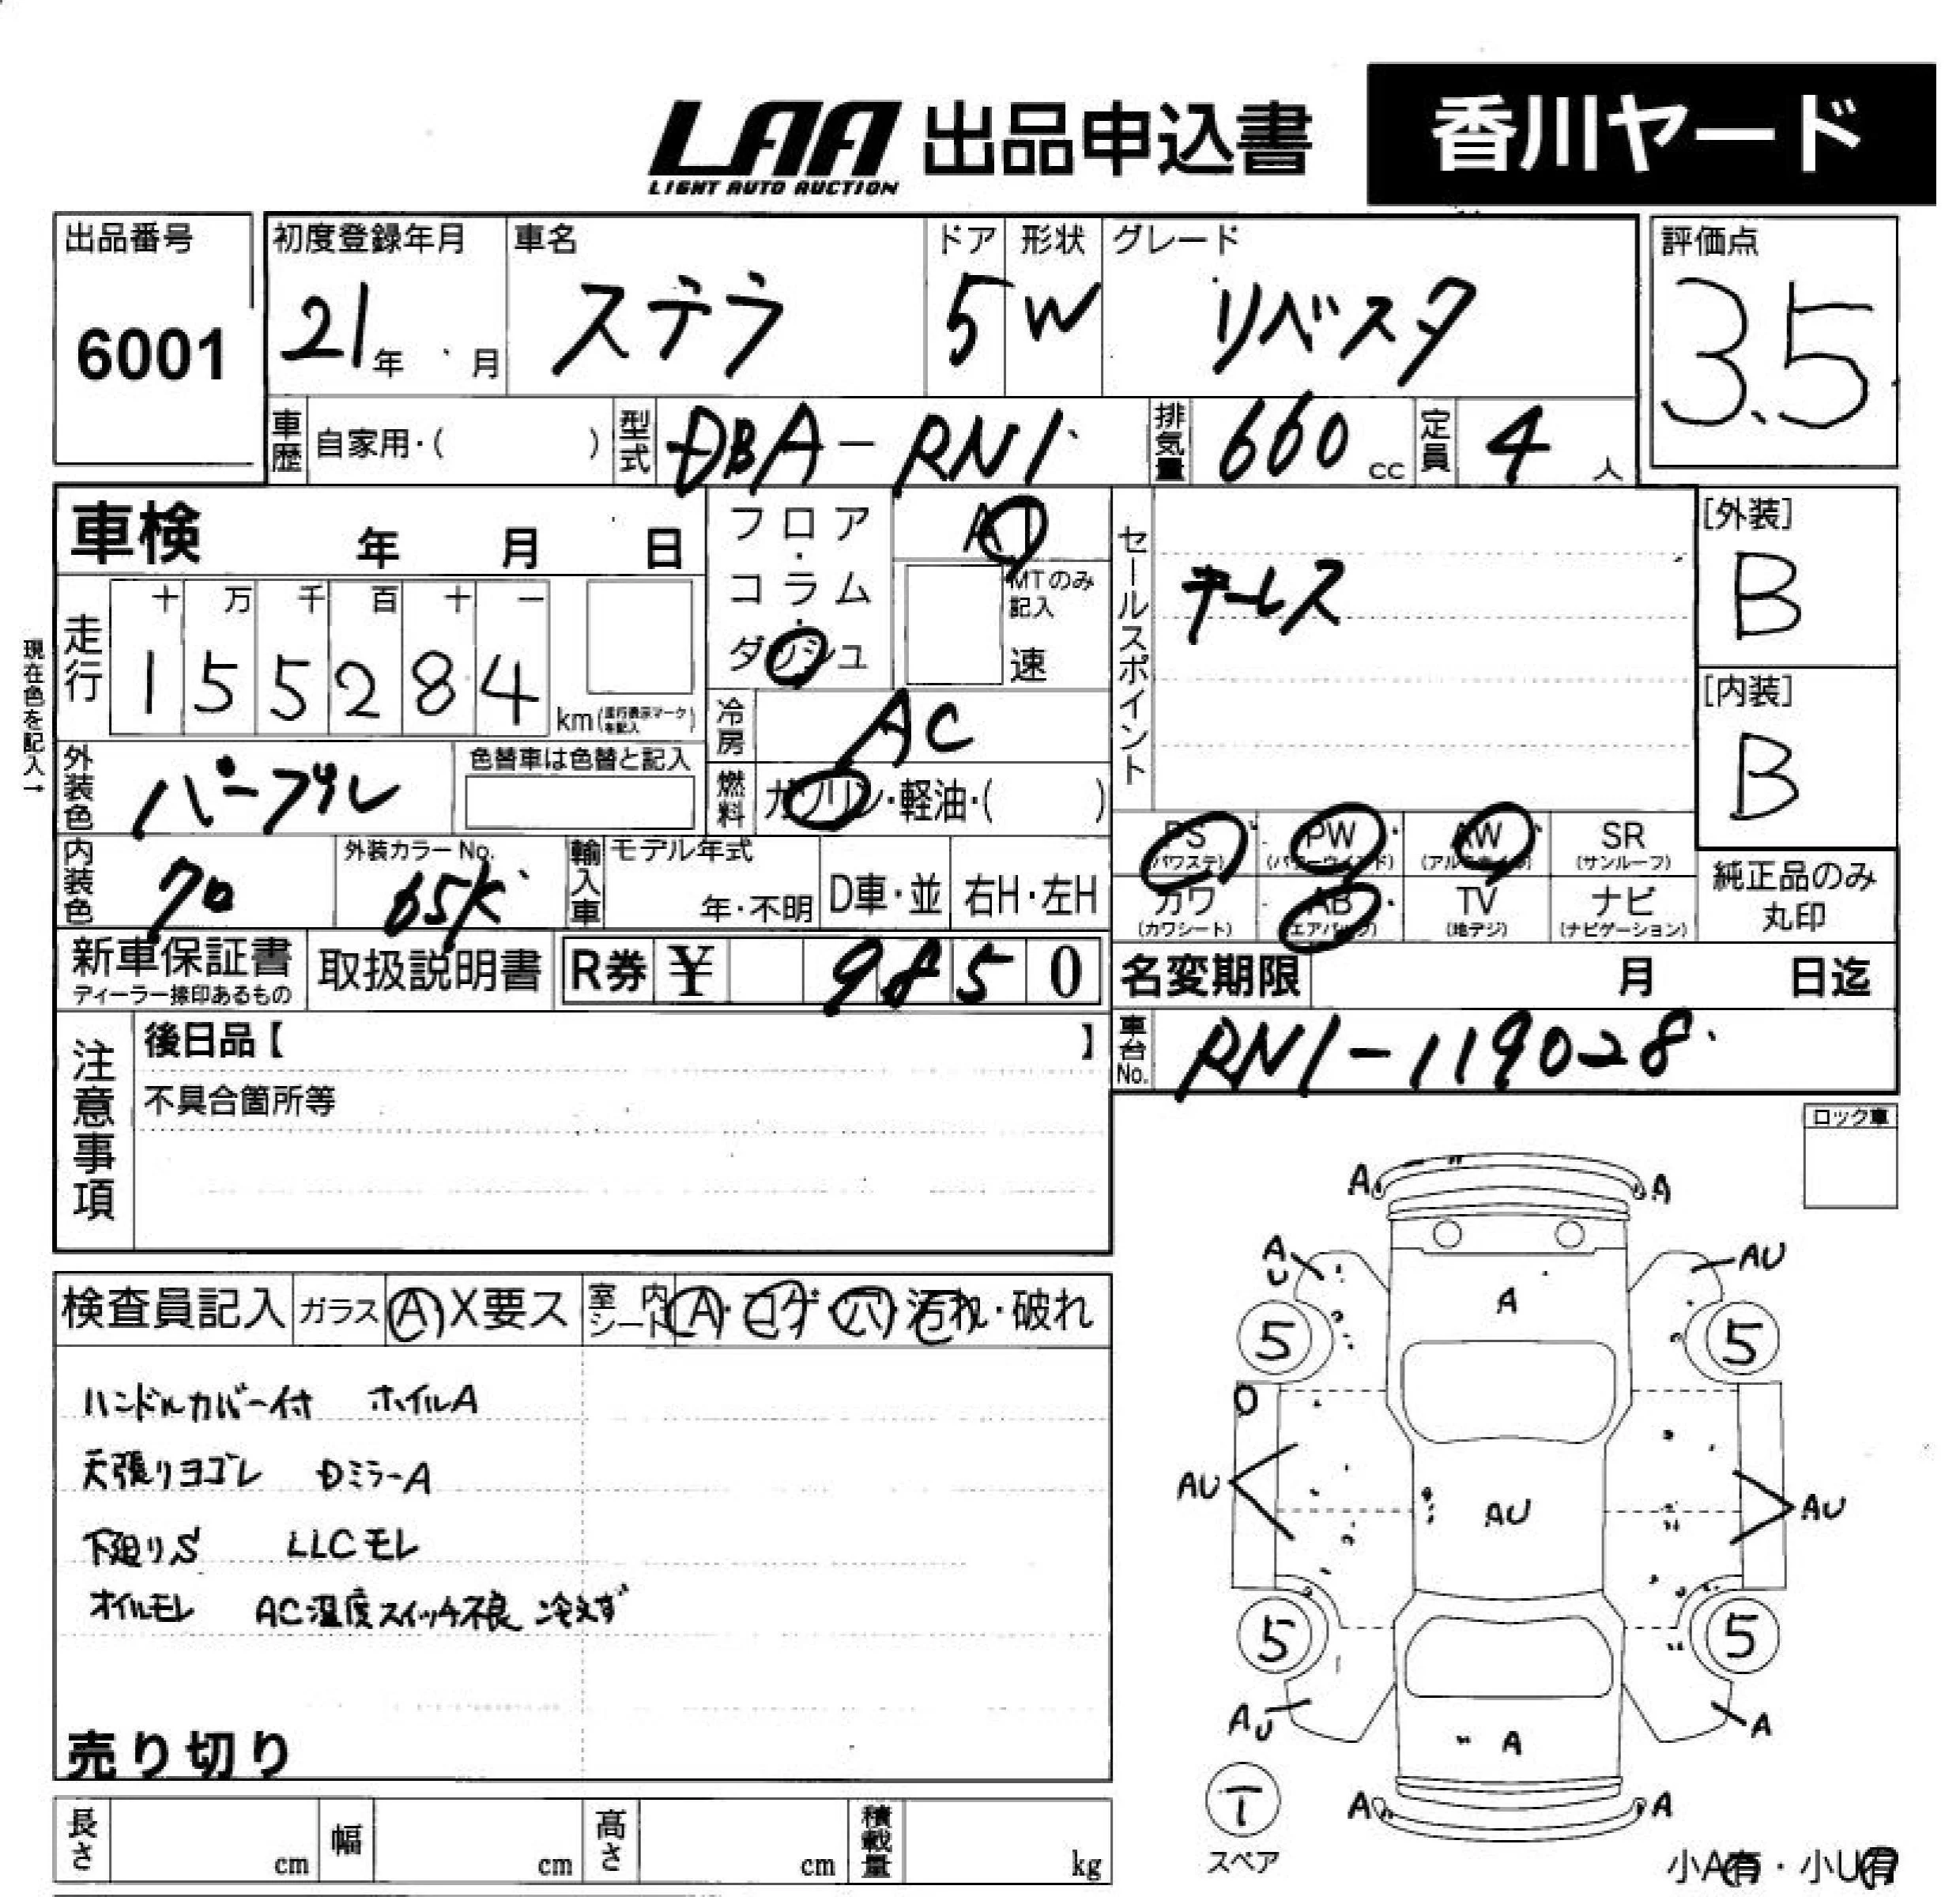 LAA 出品申込書 香川ヤード
LIGHT AUTO AUCTION
出品番号 初度登録年月 車名 ドア 形状 グレード 評価点
6001 21年 月 ステラ 5 W リベスタ 3.5
車歴 自家用・( ) 型式 DBA-RN1 排気量 660 cc 定員 4 人
車検 年 月 日 フロア・コラム・ダッシュ AT セールスポイント [外装]
MTのみ記入 速 キーレス B
走行 十 万 千 百 十 一
1 5 5 2 8 4 km (走行表示マークを記入) [内装]
現在色を記入→ 冷房 AC B
外装色 パープル 色替車は色替と記入 燃料 ガソリン・軽油・( )
PS (パワステ) PW (パワーウインド) AW (アルミホイル) SR (サンルーフ)
内装色 クロ 外装カラーNo. 65K 輸入車 モデル年式 年・不明 D車・並 右H・左H
カワ (カワシート) AB (エアバッグ) TV (地デジ) ナビ (ナビゲーション) 純正品のみ丸印
新車保証書 ディーラー捺印あるもの 取扱説明書 R券 ¥ 9850 名変期限 月 日迄
注意事項 後日品【 】 車台No. RN1-119028
不具合箇所等
ロック車
A A
A U AU
A
5 5
検査員記入 ガラス A・X要ス 室内シート A・コゲ・穴・汚れ・破れ
ハンドルカバー付 ホイルA
天張りヨゴレ DミラーA
下廻りS LLCモレ
オイルモレ AC温度スイッチ不良 冷えず
AU AU AU
5 5
AU A
A
売り切り
T
スペア
A A
長さ cm 幅 cm 高さ cm 積載量 kg
小A有・小U有